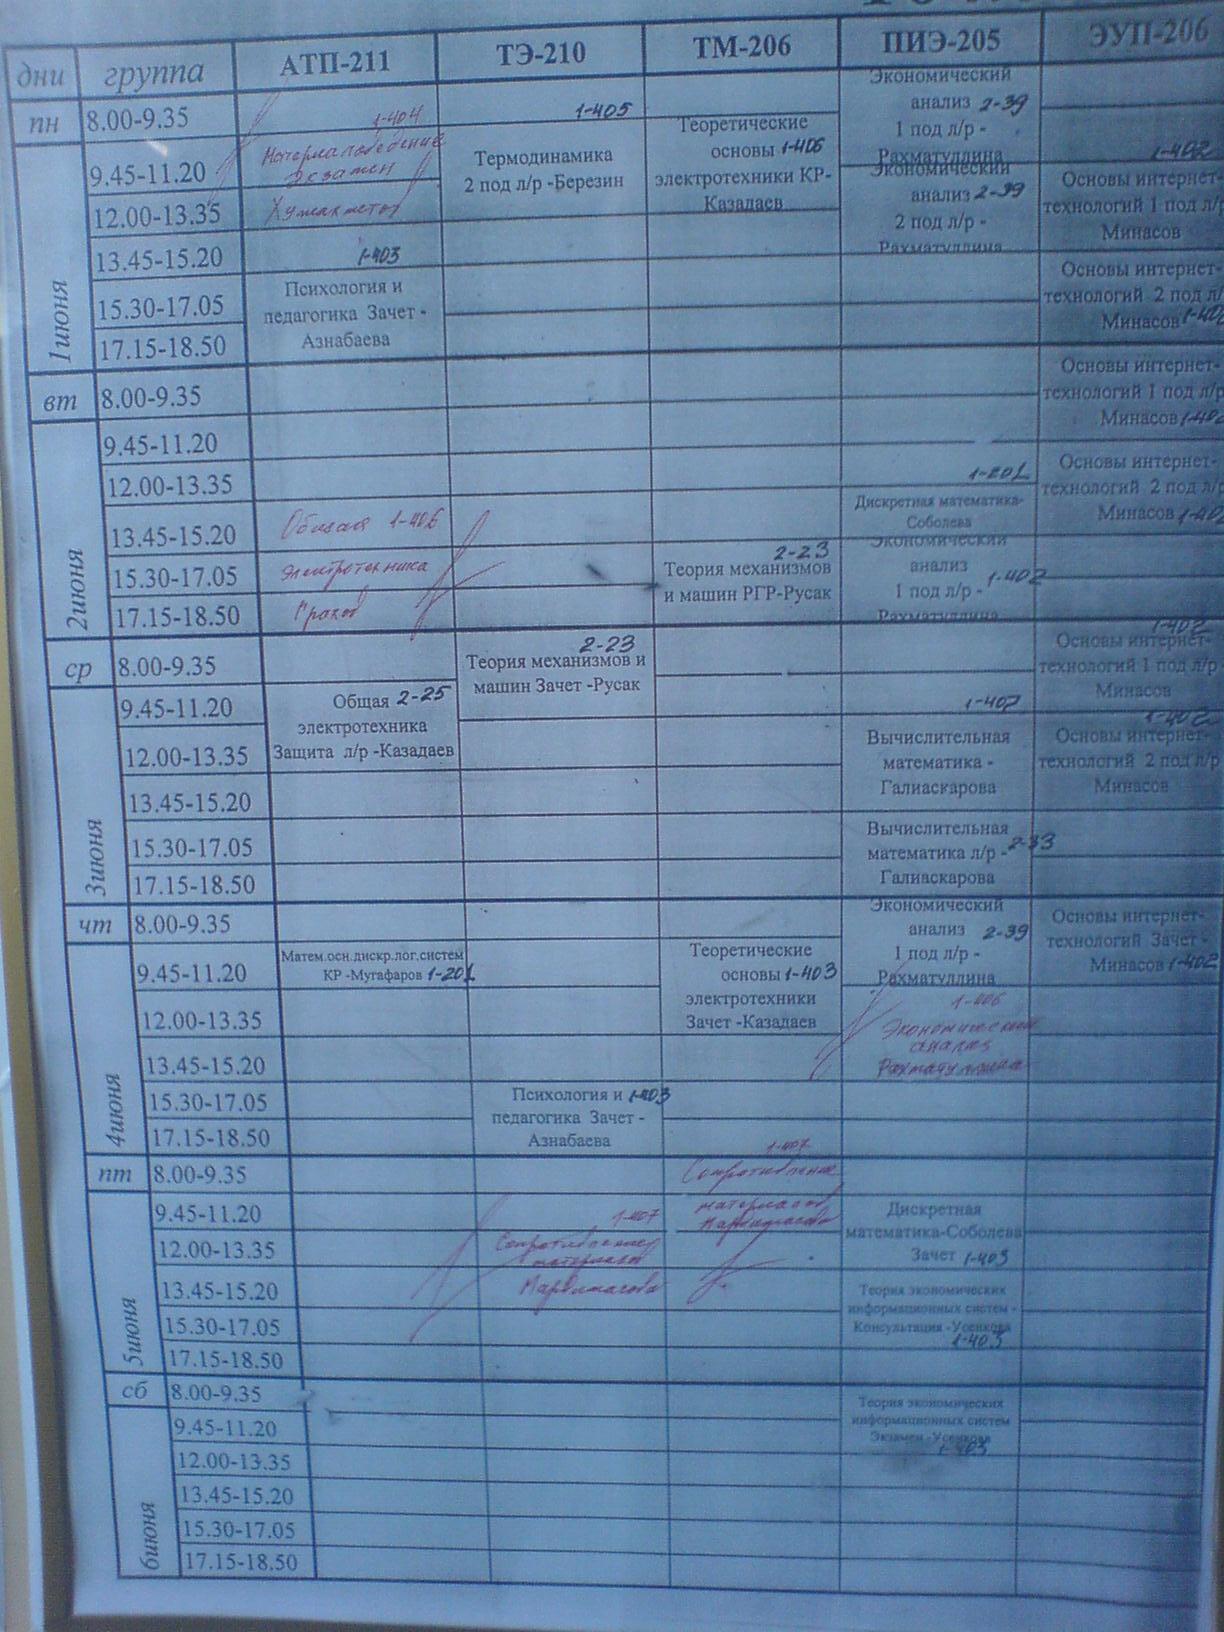 дни группа АТП-211 ТЭ-210 ТМ-206 ПИЭ-205 ЭУП-206
пн 8.00-9.35 1-404 1-405 Экономический
анализ 2-39
1 под л/р -
Рахматуллина
9.45-11.20 Материаловедение
экзамен
Термодинамика
2 под л/р -Березин
Теоретические
основы 1-406
электротехники КР-
Казадаев
Экономический
анализ 2-39
2 под л/р -
Рахматуллина
1-402
Основы интернет-
технологий 1 под л/р
Минасов
1июня
12.00-13.35
13.45-15.20 1-403
Психология и
педагогика Зачет -
Азнабаева
Основы интернет-
технологий 2 под л/
Минасов
15.30-17.05
17.15-18.50
вт 8.00-9.35 Основы интернет-
технологий 1 под л/р
Минасов
2июня
9.45-11.20
12.00-13.35 1-201
Дискретная математика-
Соболева
Основы интернет-
технологий 2 под л/р
Минасов
13.45-15.20 Общая 1-406
15.30-17.05 электротехника
2-23
Теория механизмов
и машин РГР-Русак
Экономический
анализ
1 под л/р - 1-402
Рахматуллина
17.15-18.50
ср 8.00-9.35 2-23
Теория механизмов и
машин Зачет -Русак
1-402
Основы интернет-
технологий 1 под л/р
Минасов
3июня
9.45-11.20 Общая 2-25
электротехника
Защита л/р -Казадаев
1-407
12.00-13.35 Вычислительная
математика -
Галиаскарова
1-402
Основы интернет-
технологий 2 под л/р
Минасов
13.45-15.20
15.30-17.05 Вычислительная
математика л/р - 2-33
Галиаскарова
17.15-18.50
чт 8.00-9.35 Экономический
анализ 2-39
1 под л/р -
Рахматуллина
Основы интернет-
технологий Зачет -
Минасов 1-402
4июня
9.45-11.20 Матем.осн.дискр.лог.систем
КР -Мугафаров 1-201
Теоретические
основы 1-403
электротехники
Зачет -Казадаев
12.00-13.35 1-406
Экономический
анализ
Рахматуллина
13.45-15.20
15.30-17.05 Психология и 1-403
педагогика Зачет -
Азнабаева
17.15-18.50
пт 8.00-9.35 1-407
Сопротивление
материалов
5июня
9.45-11.20 1-407
Дискретная
математика-Соболева
Зачет 1-403
12.00-13.35 Сопротивление
материалов
13.45-15.20 Теория экономических
информационных систем -
Консультация -Усенкова
1-403
15.30-17.05
17.15-18.50
сб 8.00-9.35 Теория экономических
информационных систем
Экзамен -Усенкова
1-403
6июня
9.45-11.20
12.00-13.35
13.45-15.20
15.30-17.05
17.15-18.50